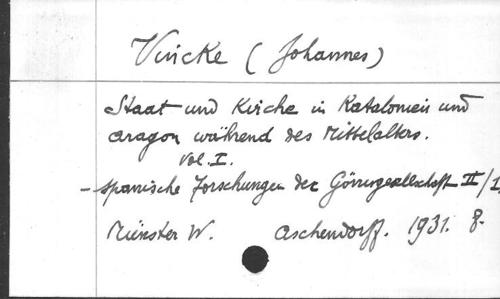 Vincke (Johannes)
Staat und Kirche in Katalonien und
Aragon während des Mittelalters.
Vol. I.
- Spanische Forschungen der Görresgesellschaft II/1
Münster W. Aschendorff. 1931. 8.